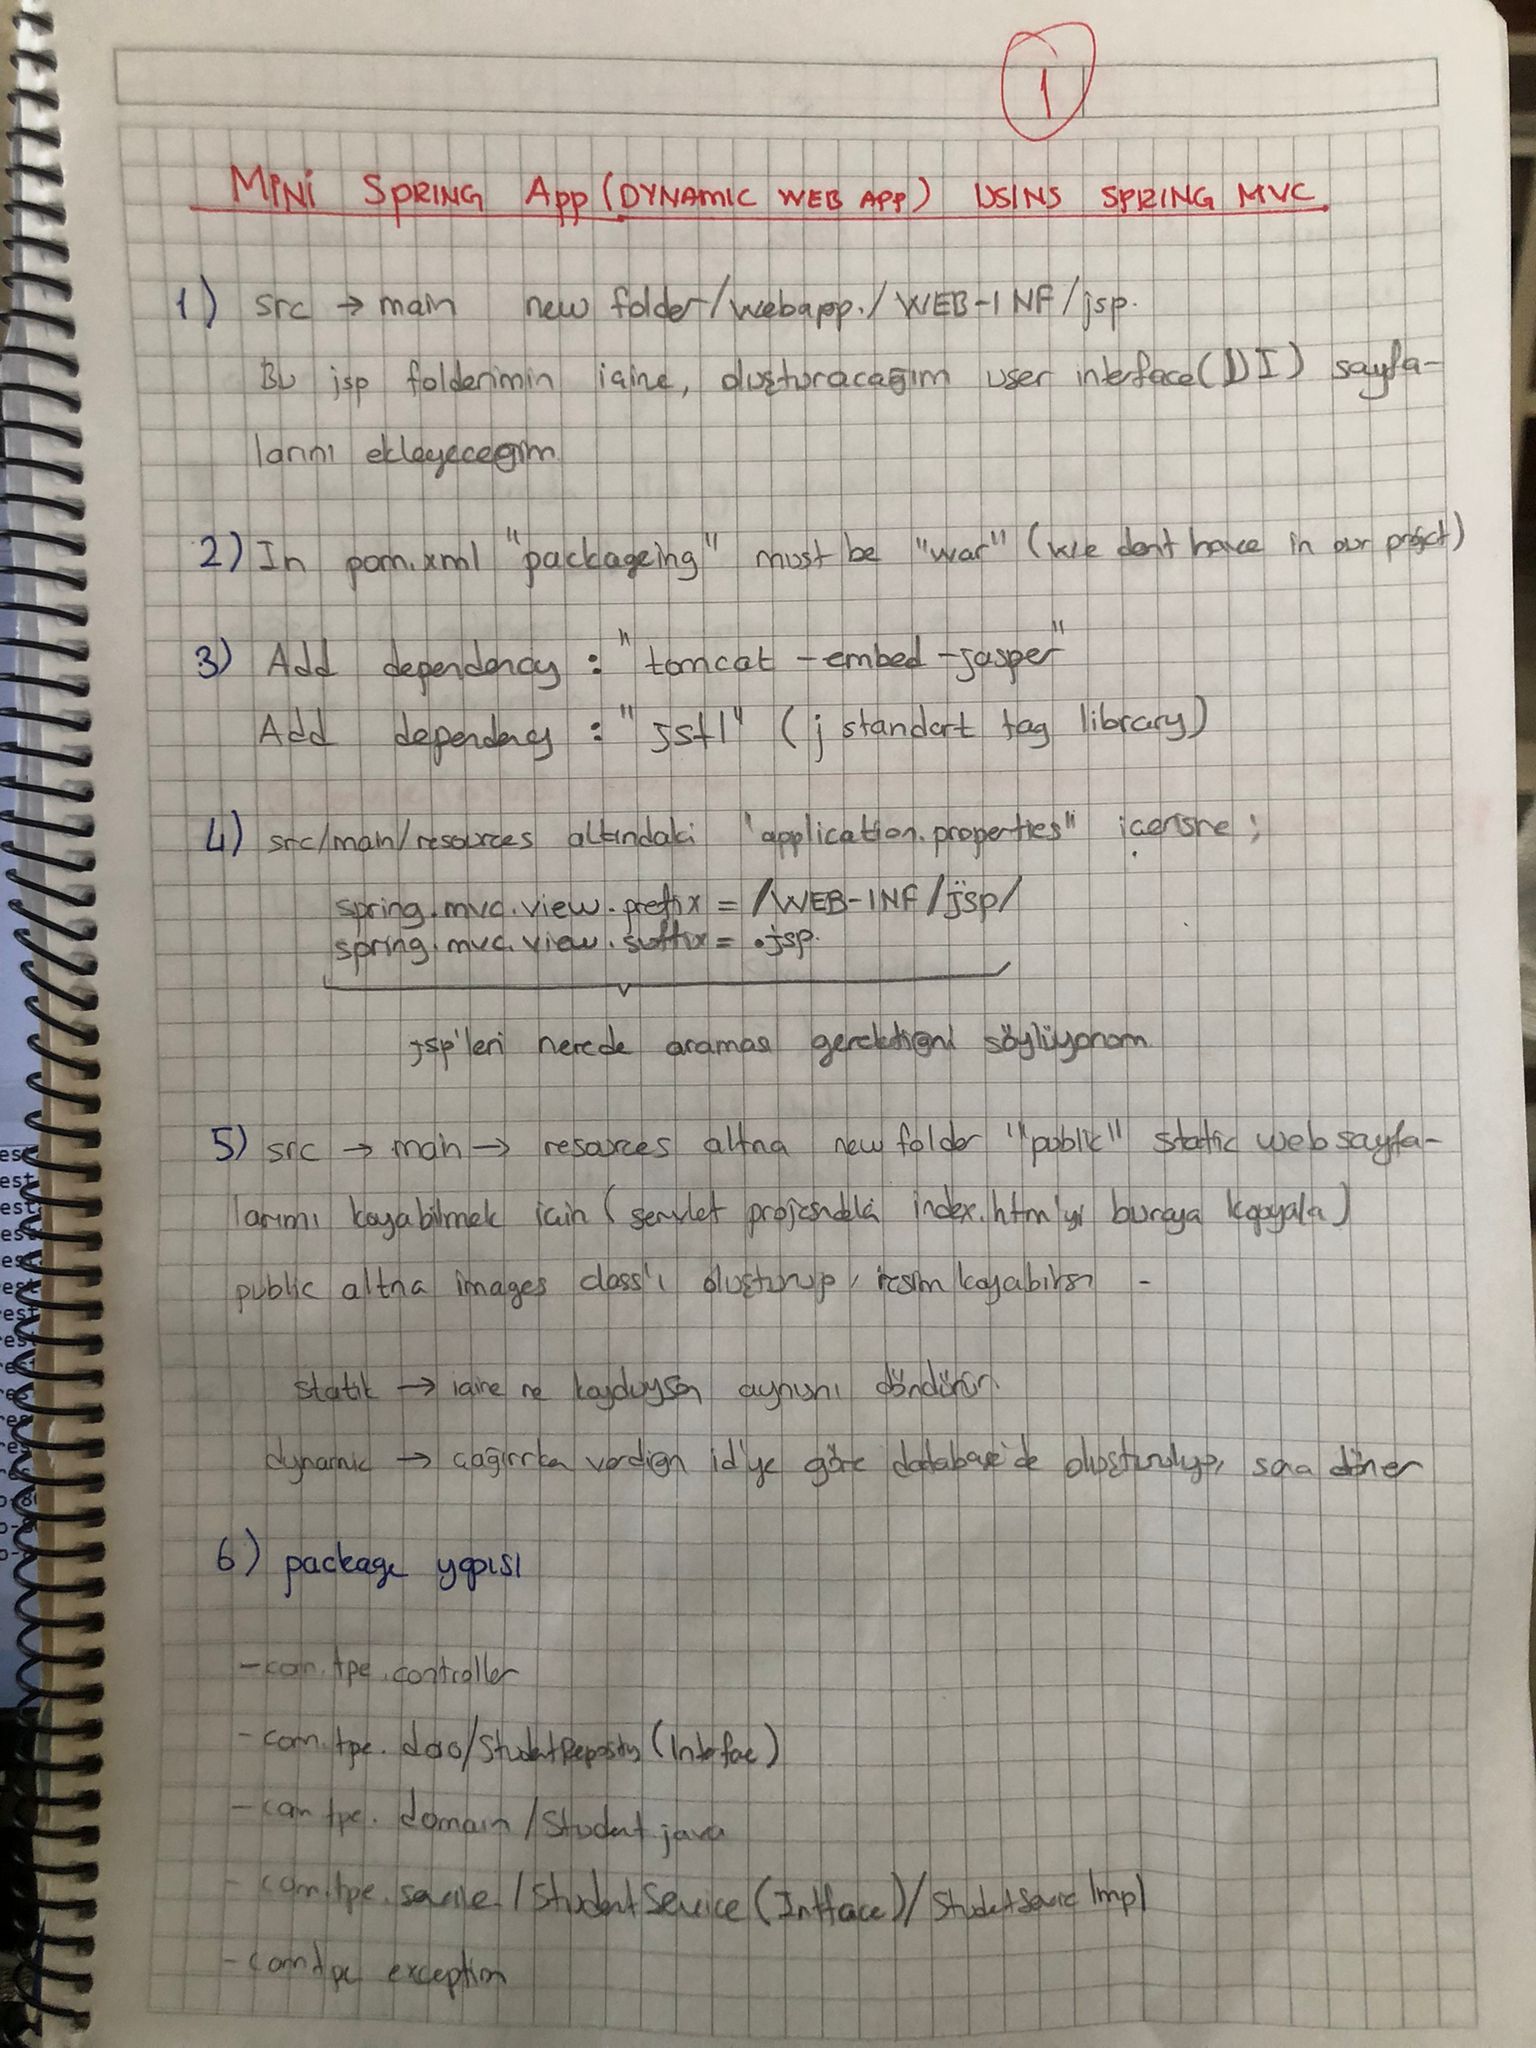 1
MİNİ SPRING App (DYNAMIC WEB APP) USINS SPRING MVC
1) src → main new folder/webapp./WEB-INF/jsp.
Bu jsp folderimin içine, oluşturacağım user interface(UI) sayfa-
larını ekleyeceğim
2) In pom.xml "packageing" must be "war" (we dont have in our project)
3) Add dependency : "tomcat-embed-jasper"
Add dependency : "jstl" (j standart tag library)
4) src/main/resources altındaki "application.properties" içerisine ;
spring.mvc.view.prefix = /WEB-INF/jsp/
spring.mvc.view.suffix = .jsp.
jsp'leri nerede araması gerektiğini söylüyorum
5) src → main → resources altına new folder "public" static web sayfa-
larımı koyabilmek için (servlet projesindeki index.htm'yi buraya kopyala)
public altına images class'ı oluşturup, resim koyabilirsin -
statik → içine ne koyduysan aynısını döndürür.
dynamic → çağırırken verdiğin id'ye göre database'de oluşturuluyor, sana döner
6) package yapısı
- com.tpe.controller
- com.tpe.dao/StudentRepository (Interface)
- com.tpe.domain/Student.java
- com.tpe.service/StudentService (Intface)/StudentService Impl
- com.tpe exception